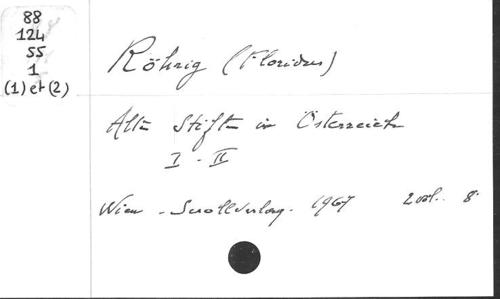 88
124
55
1
(1) et (2)
Röhrig (Floridus)
Alte Stifte in Österreich
I - II
Wien - Scrollverlag - 1967 2 vol. 8°